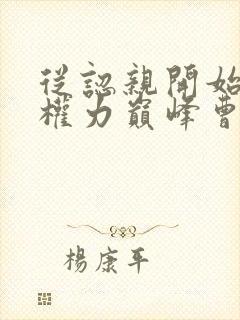 從認親開始
權力巔峰曹
楊康平